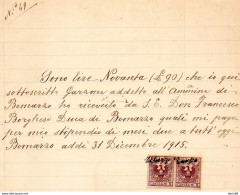 N.° 49
Sono lire Novanta (£90) che io qui
sottoscritto Garzoni addetto all'Ammōne di
Bomarzo ho ricevuto da S.E. Don Francesco
Borghese Duca di Bomarzo quali mi paga
per mio stipendio di mesi due a tutt'oggi
Bomarzo addì 31 Dicembre 1915.